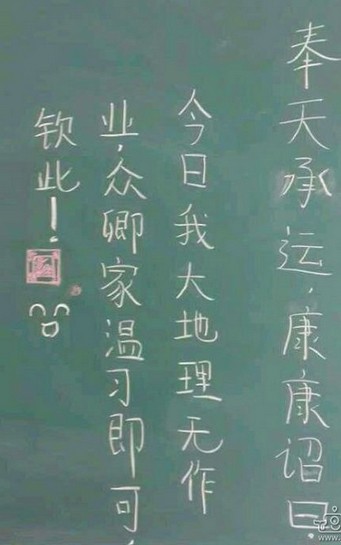 奉天承运，康康诏曰：
今日我大地理无作
业，众卿家温习即可，
钦此！